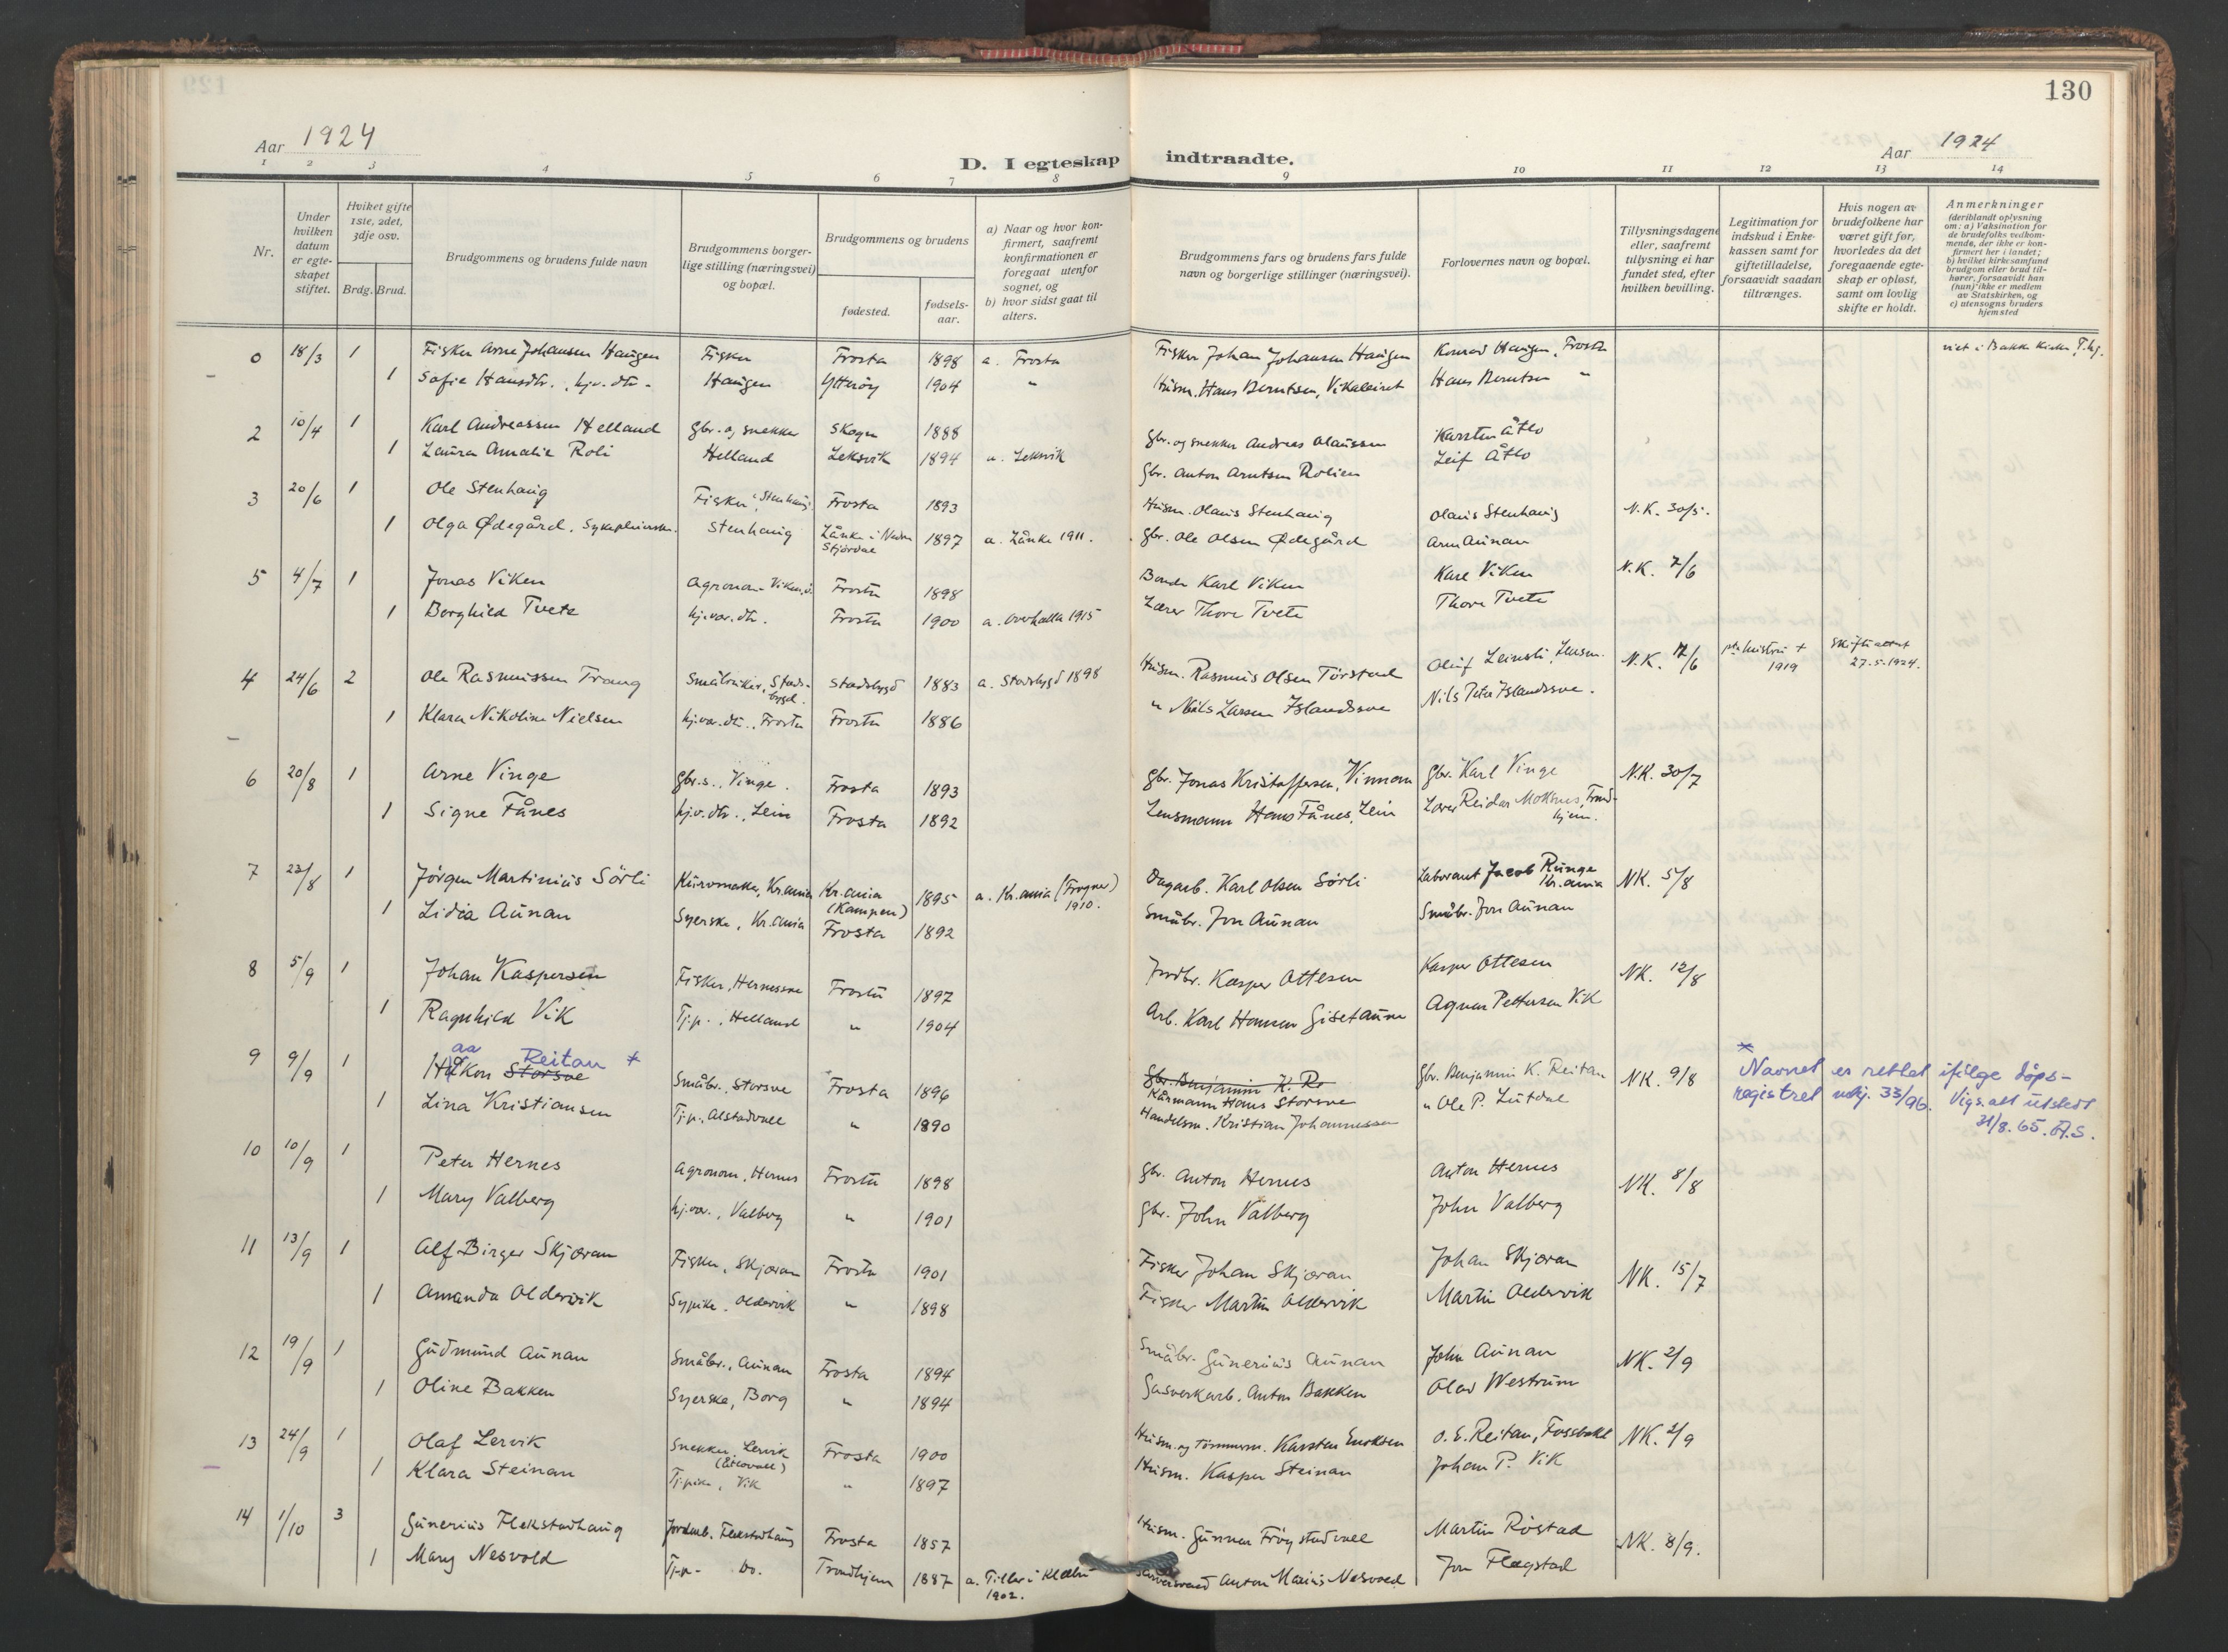 130
Aar 1924
D. I egteskap indtraadte.
Aar 1924
1 2 3 4 5 6 7 8 9 10 11 12 13 14
Nr.
Under hvilken datum er egteskapet stiftet.
Hviket gifte 1ste, 2det, 3dje osv.
Brdg. Brud.
Brudgommens og brudens fulde navn
Brudgommens borgerlige stilling (næringsvei) og bopæl.
Brudgommens og brudens
fødested.
fødsels-aar.
a) Naar og hvor konfirmert, saafremt konfirmationen er foregaat utenfor sognet, og
b) hvor sidst gaat til alters.
Brudgommens fars og brudens fars fulde navn og borgerlige stillinger (næringsvei).
Forlovernes navn og bopæl.
Tillysningsdagene eller, saafremt tullysning ei har fundet sted, efter hvilken bevilling.
Legitimation for indskud i Enkekassen samt for giftetilladelse, forsaavidt saadan tiltrænges.
Hvis nogen av brudefolkene har været gift før, hvorledes da det foregaaende egteskap er opløst, samt om lovlig skifte er holdt.
Anmerkninger
(deriblandt oplysning om: a) Vaksination for de brudefolks vedkommende, der ikke er konfirmert her i landet; b) hvilket kirkesamfund brudgom eller brud tilhører, forsaavidt han (hun) ikke er medlem av Statskirken, og c) utensogns bruders hjemsted
0 18/3 1 Fisker Arne Johansen Haugen Fisker Frosta 1898 a. Frosta Fisker Johan Johansen Haugen Konrad Haugen, Frosta viet i Bakke Kirke, T.hj.
1 Sofie Hansdtr., hj.v. dtr - Haugen Ytterøy 1904 " Husm. Hans Berntsen, Vikaleiret Hans Berntsen "
2 10/4 1 Karl Andreassen Helland gbr. og snekker Skogn 1888 gbr. og snekker Andreas Olaussen Karsten Åtlo
1 Laura Amalie Roli Helland Leksvik 1894 a. Leksvik gbr. Anton Arntsen Rolien Leif Åtlo
3 20/6 1 Ole Stenhaug Fisker, Stenhaug Frosta 1893 Husm. Olaus Stenhaug Olaus Stenhaug N.K. 30/5.
1 Olga Ødegård. Sykepleierske. Stenhaug Lånke i Nedre Stjørdal 1897 a. Lånke 1911. gbr. Ole Olsen Ødegård Arne Aunan
5 4/7 1 Jonas Viken Agronom - Viken, Frosta 1898 Bonde Karl Viken Karl Viken N.K. 7/6
1 Borghild Tvete hj.vær. dtr. Frosta 1900 a. Overhalla 1915 Lærer Thore Tvete Thore Tvete
4 24/6 2 Ole Rasmussen Trang Småbruker, Stadsbygd. Stadsbygd 1883 a. Stadsbygd 1898 Husm. Rasmus Olsen Tørstad Oluf Leinsli, Lensm. N.K. 12/6 hustru + 1919 Skifteattest 27.5.1924.
1 Klara Nikoline Nielsen hj.vær. dtr., Frosta Frosta 1886 " Nils Larsen Islandssve Nils Peter Islandssve.
6 20/8 1 Arne Vinge gbr.s., Vinge. Frosta 1893 gbr. Jonas Kristoffersen, Vinnan gbr. Karl Vinge N.K. 30/7
1 Signe Fånes hj.v. dtr., Lein Frosta 1892 Lensmann Hans Fånes, Lein Lærer Reidar Moksnes, Trondhjem.
7 23/8 1 Jørgen Martinius Sørli Kurvmaker, Kr.ania Kr.ania (Kampen) 1895 a. Kr.ania (Frogner) 1910. Dagarb. Karl Olsen Sørli Laborant Jacob Runge Kr.ania NK. 5/8
1 Lidia Aunan Syerske, Kr.ania Frosta 1892 Småbr. Jon Aunan Småbr. Jon Aunan
8 5/9 1 Johan Kaspersen Fisker, Hernessve Frosta 1897 Jordbr. Kasper Ottesen Kasper Ottesen NK. 12/8
1 Ragnhild Vik Tj.p., Helland " 1904 Arb. Karl Hansen Gisetaunn Agnar Pettersen Vik
9 9/9 1 Håkon Storsve aa Reitan + Småbr., Storsve Frosta 1896 Gbr. Benjamin K. Re Kårmann Hans Storsve gbr. Benjamin K. Reitan NK. 9/8
* Navnet er rettet ifølge døps-
registret 33/96. Vigs.att utstedt
31/8. 65. A.S.
1 Lina Kristiansen Tj.p. Alstadvall " 1890 Handelsm. Kristian Johannessen " Ole P. Lutdal
10 10/9 1 Peter Hernes Agronom, Hernes Frosta 1898 gbr. Anton Hernes Anton Hernes NK. 8/8
1 Mary Valberg hj.vær., Valberg " 1901 gbr. John Valberg John Valberg
11 13/9 1 Alf Birger Skjæran Fisker, Skjæran Frosta 1901 Fisker Johan Skjæran Johan Skjæran NK. 15/7
1 Amanda Oldervik Sypike, Oldervik " 1898 Fisker Martin Oldervik Martin Oldervik
12 19/9 1 Gudmund Aunan Småbr., Aunan Frosta 1894 Småbr. Gunerius Aunan John Aunan NK. 2/9
1 Oline Bakken Syerske, Borg " 1894 Gasverkarb. Anton Bakken Olav Westrum
13 24/9 1 Olaf Lervik Snekker, Lervik Frosta 1900 Husm. og tømmerm. Karsten Eriksen O. E. Reitan, Fossbakk NK. 2/9
1 Klara Steinan Tj.pike, Vik " 1897 Husm. Kasper Steinan Johan P. Vik
14 1/10 3 Gunerius Flekstadhaug Jordarb. Flekstadhaug Frosta 1857 Husm. Gunnar Frøystadvall Martin Røstad NK. 8/9.
1 Mary Nesvold Tj.p- Do. Trondhjem 1887 a. Tiller i Klæbu 1902. Anton Marius Nesvold Jon Flægstad